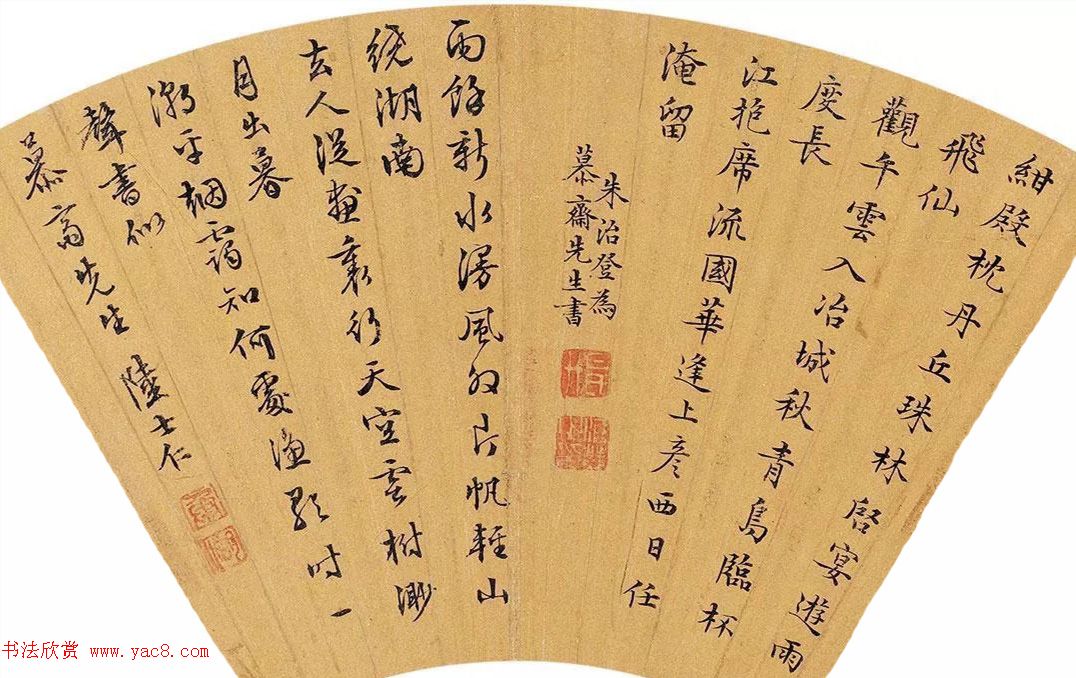 紺殿枕丹丘珠林啓宴遊雨
飛仙
觀午雲入冶城秋青鳥臨杯
度長
江抱席流國華逢上彥西日任
淹留
朱治登為
慕齋先生書
雨餘新水漫風外片帆輕山
繞湖南
去人從畫裏行天空雲樹渺
月出暮
潮平烟靄知何處漁歌時一
聲書似
慕齋先生 陸士仁
书法欣赏 www.yac8.com